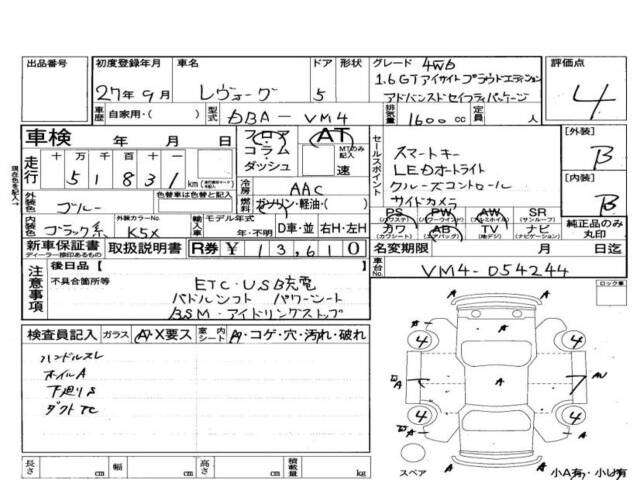 出品番号 初度登録年月 車名 ドア 形状 グレード 4WD 評価点
27年9月 レヴォーグ 5 1.6GTアイサイトプラウドエディション
アドバンスドセイフティパッケージ 4
車歴 自家用・( ) 型式 DBA-VM4 排気量 1600 cc 定員 人
車検 年 月 日 フロア コラム ダッシュ AT MTのみ記入 速
走行 十万千百十一 51831 km
現在色を記入
冷房 AAC
燃料 ガソリン・軽油・( )
外装色 ブルー 色替車は色替と記入
内装色 ブラック系 外装カラーNo. K5X 輸入車 モデル年式 年・不明 D車・並 右H・左H
セールスポイント
スマートキー
LEDオートライト
クルーズコントロール
サイドカメラ
[外装] B
[内装] B
PS (パワステ) PW (パワーウインド) AW (アルミホイル) SR (サンルーフ)
カワ (カワシート) AB (エアバッグ) TV (地デジ) ナビ (ナビゲーション)
純正品のみ丸印
新車保証書 ディーラー捺印あるもの 取扱説明書 R券 ¥13,610 名変期限 月 日
注意事項 後日品[ ]
不具合箇所等 ETC・USB充電
パドルシフト パワーシート
BSM・アイドリングストップ
車台No. VM4-054244
ロック車
検査員記入 ガラス A・X要ス 室内シート A・コゲ・穴・汚れ・破れ
ハンドルスレ
ホイルA
下廻りS
ダクトTC
A
A
4
4
A
A
A
4
4
A
A
A
スペア 小A有・小U有
長さ cm 幅 cm 高さ cm 積載量 kg